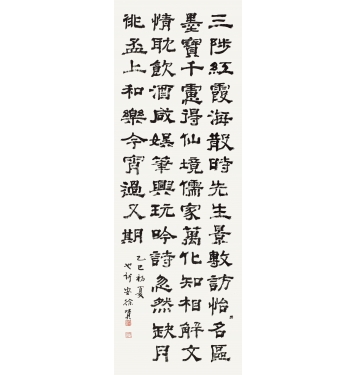 三陟紅霞海散時先生景數訪怡名區
墨寶千慮得仙境儒家萬化知相解文
情耽飲酒咸娛筆興玩吟詩忽然缺月
兆孟上和樂今宵過又期
乙巳初夏